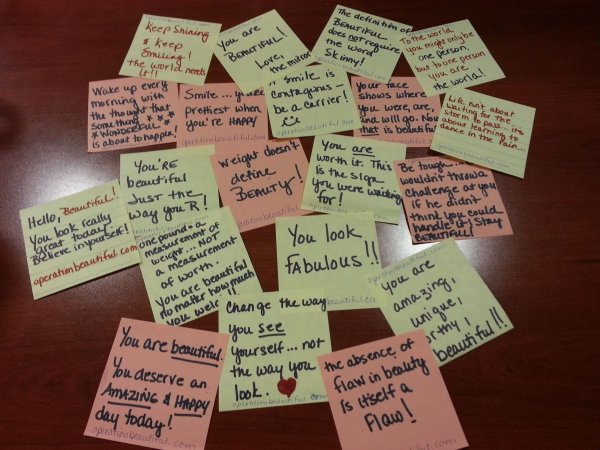 Keep Shining
& Keep
Smiling!
the world needs
it!!
You are
BEAUTIFUL!
Love,
the mirror
The definition of
BEAUTIFUL
does not require
the word
Skinny!
To the world
you might only be
one person,
but to one person
you are
the world!
Wake up every
morning with
the thought that
something
WONDERFUL
is about to happen!
operationbeautiful.com
Smile...
prettiest when
you're HAPPY
smile is
contagious-
be a carrier!
Your face
shows where
you were, are,
and will go. Now
that is beautiful
Life isn't about
waiting for the
storm to pass... it's
about learning to
dance in the rain...
Hello, Beautiful!
You look really
great today.
Believe in yourself!
operationbeautiful.com
You'RE
beautiful
Just the
way you R!
Weight doesn't
define
BEAUTY!
operationbeautiful.
You are
worth it. This
is the sign
you were waiting
for!
Be tough-
wouldn't throw a
challenge at you
if he didn't
think you could
handle it! Stay
BEAUTIFUL!
one pound = a
measurement of
weight... Not
a measurement
of worth.
You are beautiful
no matter how much
you weigh!!
You look
FABULOUS!!
you are
amazing,
unique,
beautiful!!
You are beautiful.
You deserve an
AMAZING & HAPPY
day today!
operationbeautiful.com
Change the way
you see
yourself... not
the way you
look.
operationbeautiful.com
the absence of
flaw in beauty
is itself a
Flaw!